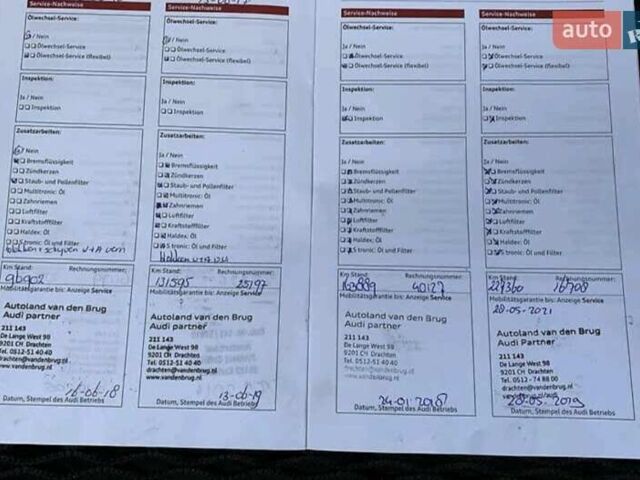 Service-Nachweise
Ölwechsel-Service:
Ja / Nein
Ölwechsel-Service
Ölwechsel-Service (flexibel)
Inspektion:
Ja / Nein
Inspektion
Zusatzarbeiten:
Ja / Nein
Bremsflüssigkeit
Zündkerzen
Staub- und Pollenfilter
Multitronic: Öl
Zahnriemen
Luftfilter
Kraftstofffilter
Haldex: Öl
S tronic: Öl und Filter
Km Stand: Rechnungsnummer:
96902
Mobilitätsgarantie bis: Anzeige Service
Autoland van den Brug
Audi partner
211 143
De Lange West 98
9201 CH Drachten
Tel. 0512-51 40 40
drachten@vandenbrug.nl
www.vandenbrug.nl
26-06-18
Datum, Stempel des Audi Betriebs
Service-Nachweise
Ölwechsel-Service:
Ja / Nein
Ölwechsel-Service
Ölwechsel-Service (flexibel)
Inspektion:
Ja / Nein
Inspektion
Zusatzarbeiten:
Ja / Nein
Bremsflüssigkeit
Zündkerzen
Staub- und Pollenfilter
Multitronic: Öl
Zahnriemen
Luftfilter
Kraftstofffilter
Haldex: Öl
S tronic: Öl und Filter
Km Stand: Rechnungsnummer:
131595 25197
Mobilitätsgarantie bis: Anzeige Service
Autoland van den Brug
Audi partner
211 143
De Lange West 98
9201 CH Drachten
Tel. 0512-51 40 40
drachten@vandenbrug.nl
www.vandenbrug.nl
13-06-19
Datum, Stempel des Audi Betriebs
Service-Nachweise
Ölwechsel-Service:
Ja / Nein
Ölwechsel-Service
Ölwechsel-Service (flexibel)
Inspektion:
Ja / Nein
Inspektion
Zusatzarbeiten:
Ja / Nein
Bremsflüssigkeit
Zündkerzen
Staub- und Pollenfilter
Multitronic: Öl
Zahnriemen
Luftfilter
Kraftstofffilter
Haldex: Öl
S tronic: Öl und Filter
Km Stand: Rechnungsnummer:
163889 40127
Mobilitätsgarantie bis: Anzeige Service
Autoland van den Brug
Audi partner
211 143
De Lange West 98
9201 CH Drachten
Tel. 0512-51 40 40
drachten@vandenbrug.nl
www.vandenbrug.nl
Datum, Stempel des Audi Betriebs
Service-Nachweise
Ölwechsel-Service:
Ja / Nein
Ölwechsel-Service
Ölwechsel-Service (flexibel)
Inspektion:
Ja / Nein
Inspektion
Zusatzarbeiten:
Ja / Nein
Bremsflüssigkeit
Zündkerzen
Staub- und Pollenfilter
Multitronic: Öl
Zahnriemen
Luftfilter
Kraftstofffilter
Haldex: Öl
S tronic: Öl und Filter
Km Stand: Rechnungsnummer:
16708
Mobilitätsgarantie bis: Anzeige Service
28-05-2021
Autoland van den Brug
Audi partner
211 143
De Lange West 98
9201 CH Drachten
Tel. 0512 - 74 88 00
drachten@vandenbrug.nl
vandenbrug.nl/audi
Datum, Stempel des Audi Betriebs
auto